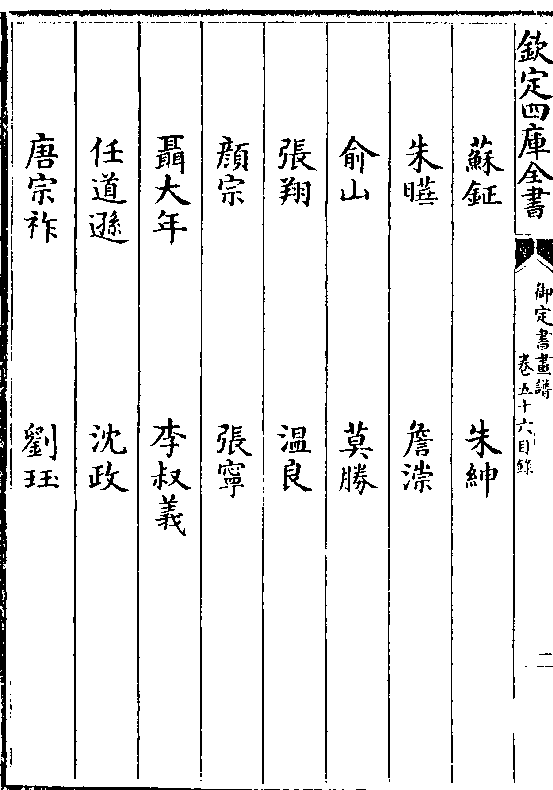 欽定四庫全書
御定書畫譜
卷五十六目錄
二
蘇鉦
朱紳
朱曣
詹漴
俞山
莫勝
張翔
溫良
顔宗
張寧
聶大年
李叔義
任道遜
沈政
唐宗祚
劉珏